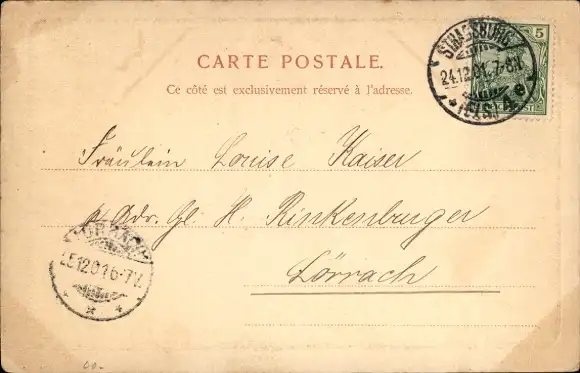 CARTE POSTALE.
Ce côté est exclusivement réservé à l'adresse.
STRASSBURG
24.12.01. 7-8N.
* (ELS.) 4 e
5
Fräulein Louise Kaiser
p. Adr. Hl. H. Rinkenburger
Lörrach
LÖRRACH
25.12.01 6-7V.
00-